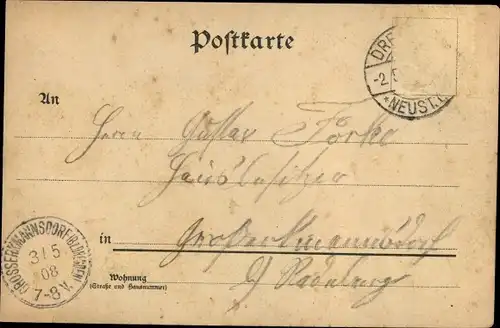 Postkarte
DRE
-2.5
*NEUST.
An
Herrn Gustav Förke
Hausbesitzer
in Großerkmannsdorf
b/ Radeberg
GROSSERKMANNSDORF
3/5
08
7-8 V.
Wohnung
(Straße und Hausnummer)